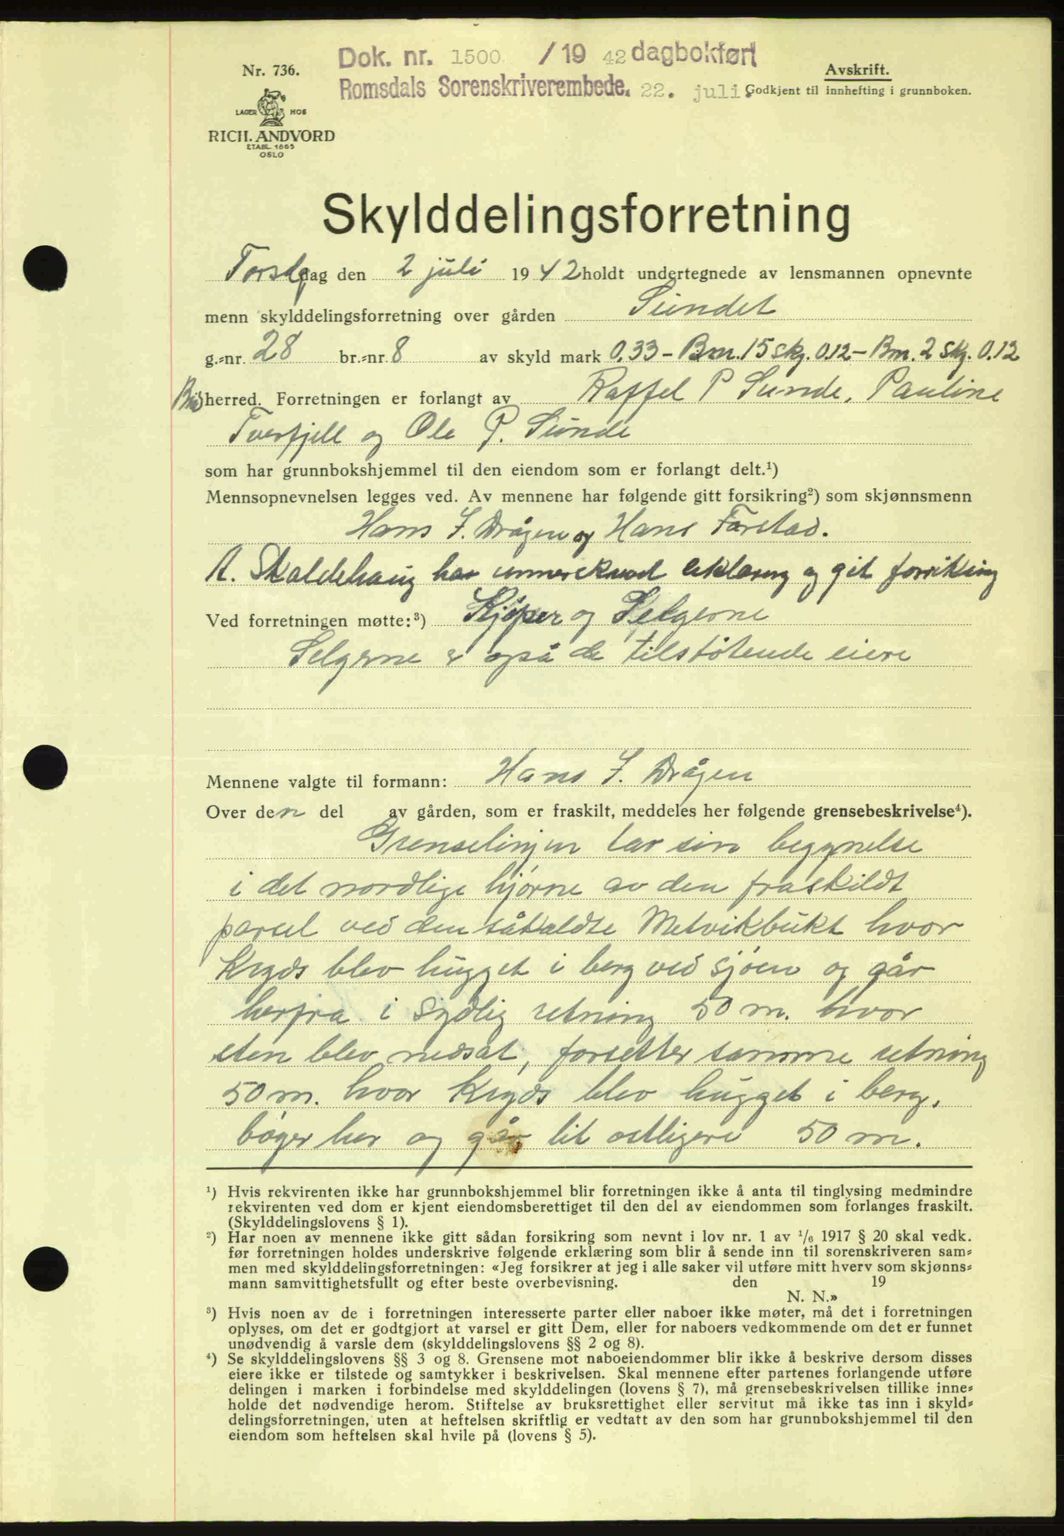 Dok. nr. 1500 /19 42 dagbokført
Romsdals Sorenskriverembede. 22. juli
Nr. 736.
LAGER HOS
RICH. ANDVORD
ETABL. 1865
OSLO
Avskrift.
Godkjent til innhefting i grunnboken.
Skylddelingsforretning
Torsdag den 2 juli 1942 holdt undertegnede av lensmannen opnevnte
menn skylddelingsforretning over gården Sundet
g.=nr. 28 br.=nr. 8 av skyld mark 0.33 - Bnr. 15 skg. 0.12 - Bnr. 2 skg. 0.12
Bud herred. Forretningen er forlangt av Raffel P Sunde, Pauline
Tverfjell og Ole P. Sunde
som har grunnbokshjemmel til den eiendom som er forlangt delt.¹)
Mennsopnevnelsen legges ved. Av mennene har følgende gitt forsikring²) som skjønnsmenn
Hans J. Drågen og Hans Farstad.
A. Skaldehaug har underskrevd erklæring og git forsikring
Ved forretningen møtte:³) Kjøper og Selgerne
Selgerne er også de tilstøtende eiere
Mennene valgte til formann: Hans J. Drågen
Over den del av gården, som er fraskilt, meddeles her følgende grensebeskrivelse⁴).
Grenselinjen tar sin begynelse
i det nordlige hjørne av den fraskildt
parsel ved den såkaldte Metvikbukt hvor
kryds blev hugget i berg ved sjøen og går
herfra i sydlig retning 50 m. hvor
sten blev nedsat, forsetter samme retning
50 m. hvor kryds blev hugget i berg,
bøger her og går lit østligere 50 m.
¹) Hvis rekvirenten ikke har grunnbokshjemmel blir forretningen ikke å anta til tinglysing medmindre
rekvirenten ved dom er kjent eiendomsberettiget til den del av eiendommen som forlanges fraskilt.
(Skylddelingslovens § 1).
²) Har noen av mennene ikke gitt sådan forsikring som nevnt i lov nr. 1 av ¹/₆ 1917 § 20 skal vedk.
før forretningen holdes underskrive følgende erklæring som blir å sende inn til sorenskriveren sam=
men med skylddelingsforretningen: «Jeg forsikrer at jeg i alle saker vil utføre mitt hverv som skjønns=
mann samvittighetsfullt og efter beste overbevisning. den 19
N. N.»
³) Hvis noen av de i forretningen interesserte parter eller naboer ikke møter, må det i forretningen
oplyses, om det er godtgjort at varsel er gitt Dem, eller for naboers vedkommende om det er funnet
unødvendig å varsle dem (skylddelingslovens §§ 2 og 8).
⁴) Se skylddelingslovens §§ 3 og 8. Grensene mot naboeiendommer blir ikke å beskrive dersom disses
eiere ikke er tilstede og samtykker i beskrivelsen. Skal mennene efter partenes forlangende utføre
delingen i marken i forbindelse med skylddelingen (lovens § 7), må grensebeskrivelsen tillike inne=
holde det nødvendige herom. Stiftelse av bruksrettighet eller servitut må ikke tas inn i skyld=
delingsforretningen, uten at heftelsen skriftlig er vedtatt av den som har grunnbokshjemmel til den
eiendom som heftelsen skal hvile på (lovens § 5).